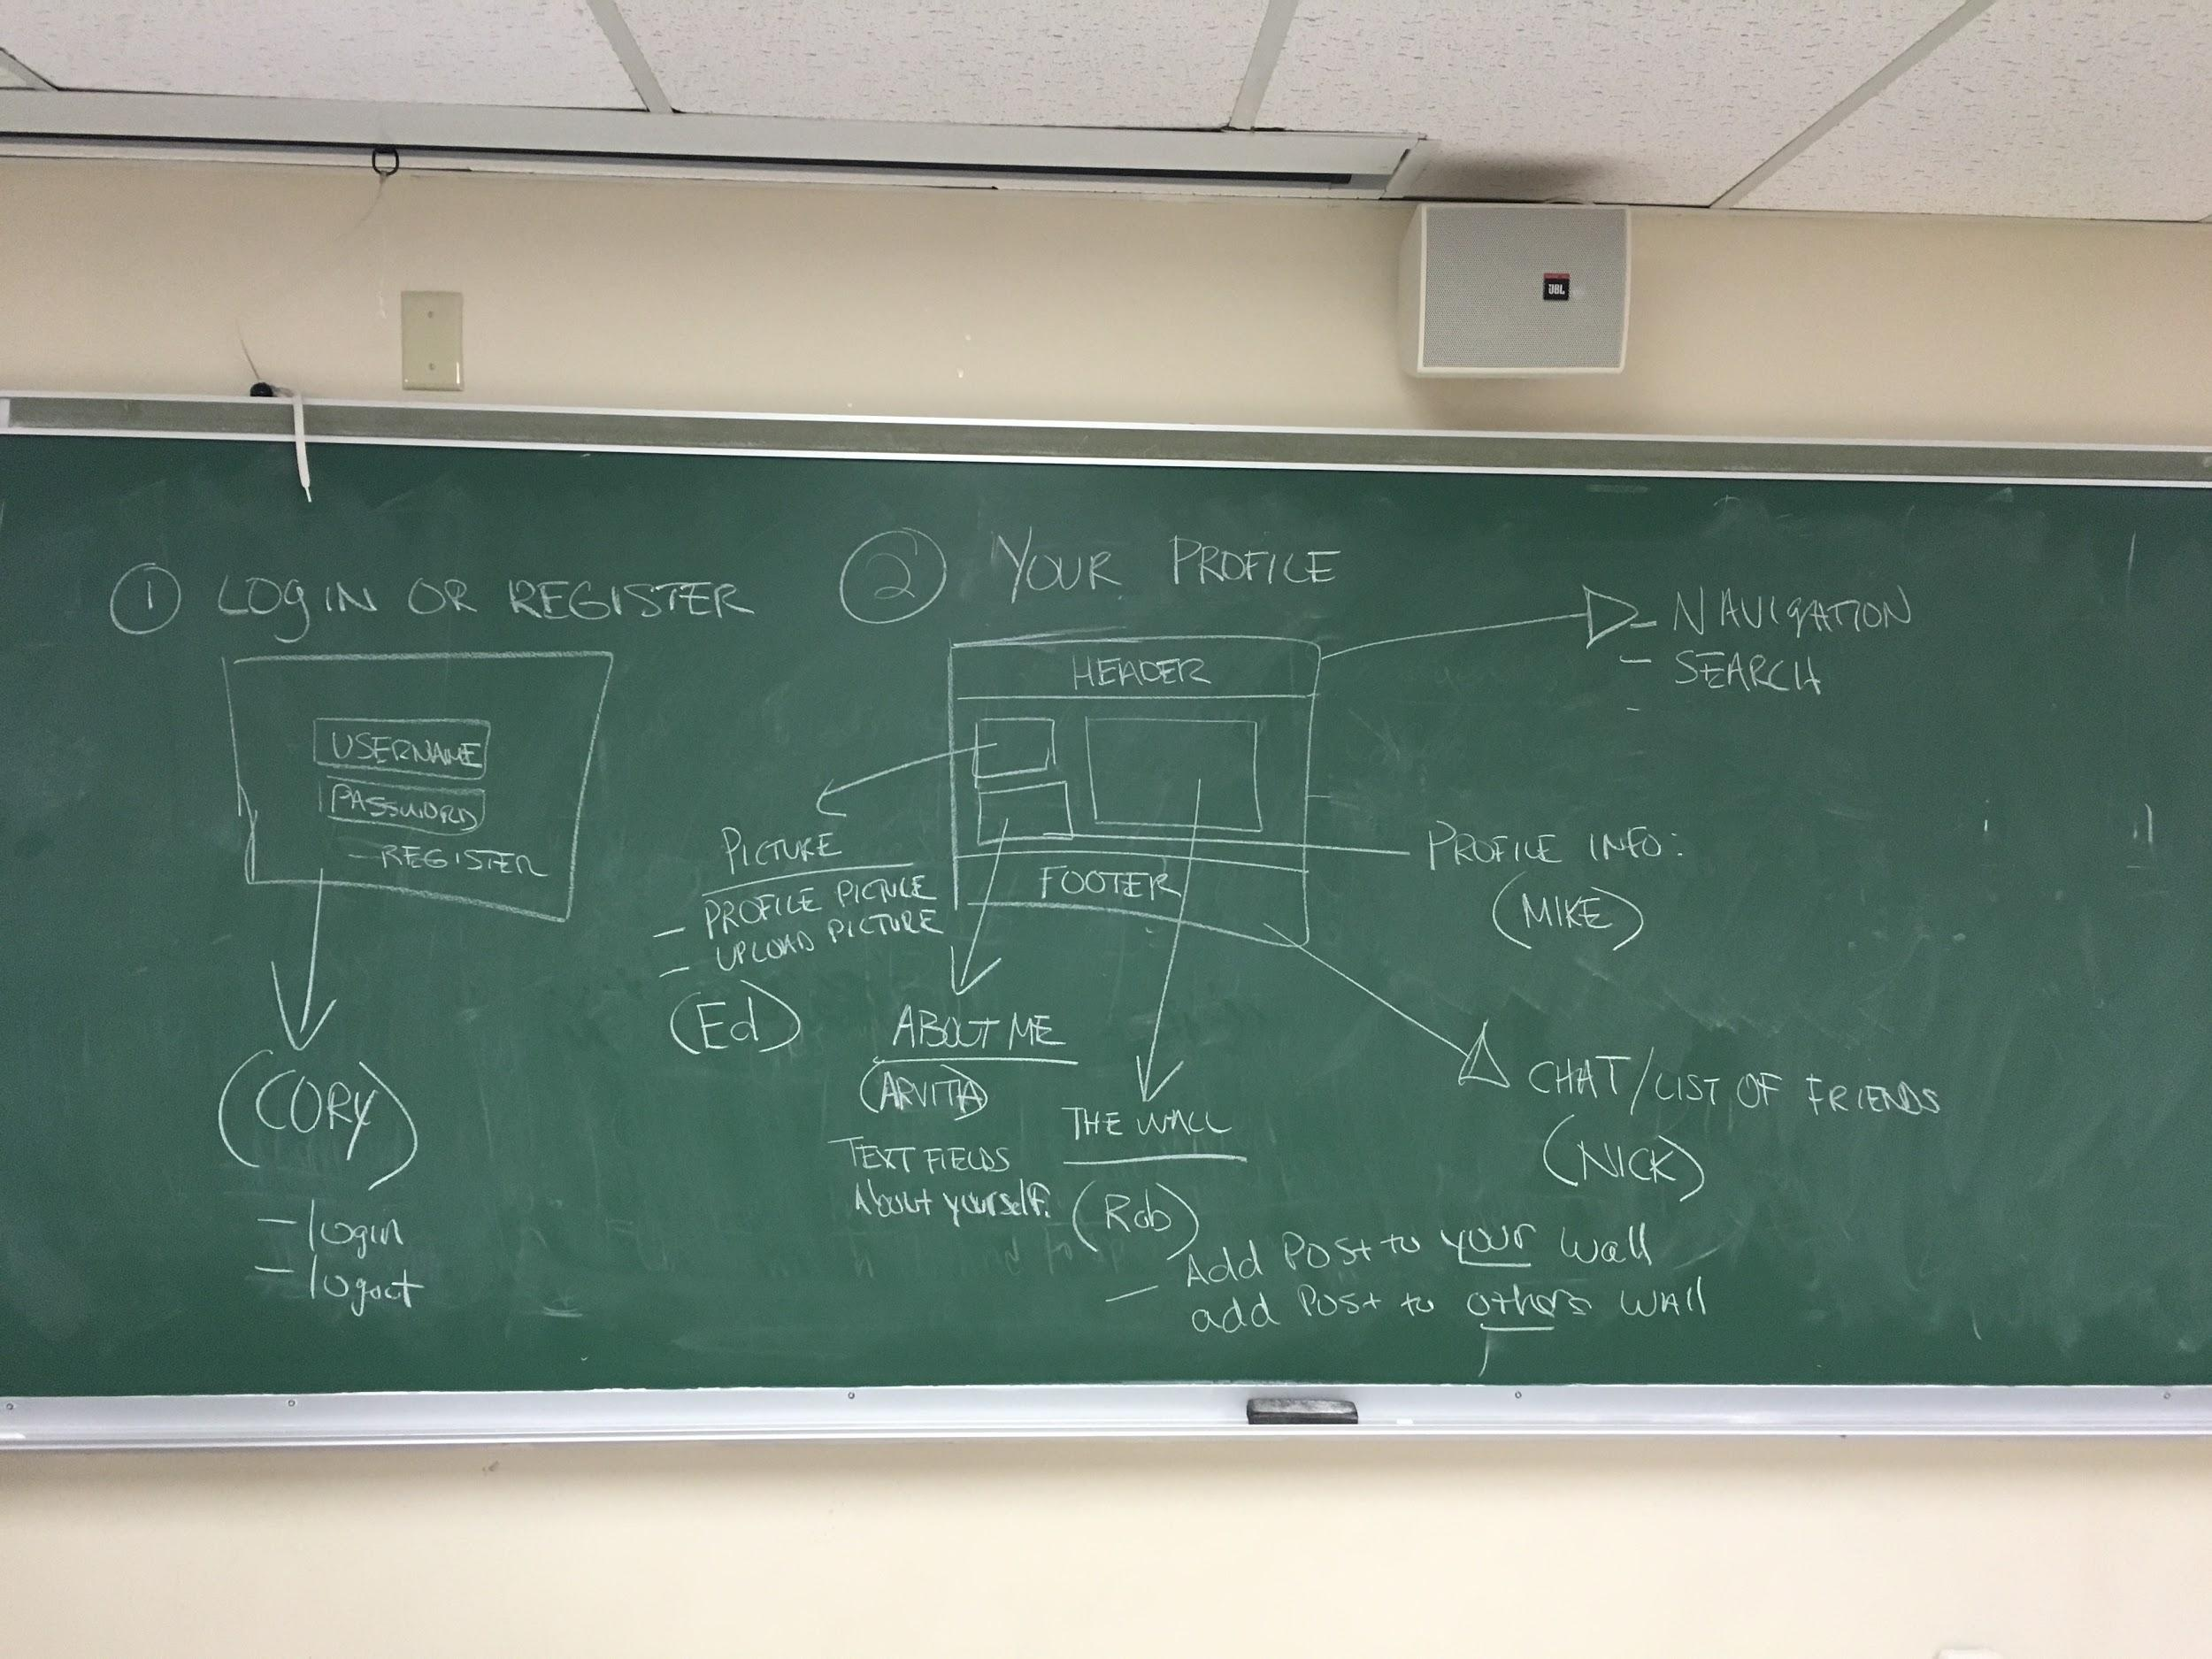 JBL
① LOGIN OR REGISTER
USERNAME
PASSWORD
- REGISTER
(CORY)
- login
- logout
② YOUR PROFILE
HEADER
FOOTER
- NAVIGATION
- SEARCH
PICTURE
- PROFILE PICTURE
- UPLOAD PICTURE
(Ed)
ABOUT ME
(ARVITA)
TEXT FIELDS
About yourself.
THE WALL
(Rob)
- Add Post to your wall
add Post to others WAll
PROFILE INFO:
(MIKE)
CHAT/LIST OF FRIENDS
(NICK)